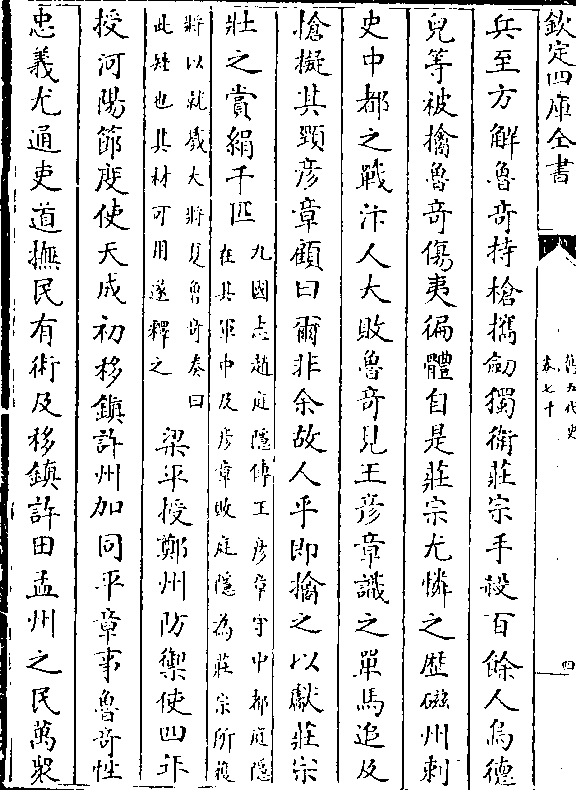 欽定四庫全書
舊五代史
卷七十
四
兵至方解魯奇持槍攜劍獨衛莊宗手殺百餘人烏德
兒等被擒魯奇傷夷徧體自是莊宗尤憐之歷磁州刺
史中都之戰汴人大敗魯奇見王彦章識之單馬追及
槍擬其頸彦章顧曰爾非余故人乎即擒之以獻莊宗
壯之賞絹千匹
九國志趙庭隱傳王彦章守中都庭隱
在其軍中及彦章敗庭隱為莊宗所獲
將以就戮大將夏魯奇奏曰
此矬也其材可用遂釋之
梁平授鄭州防禦使四年
授河陽節度使天成初移鎮許州加同平章事魯奇性
忠義尤通吏道撫民有術及移鎮許田孟州之民萬衆